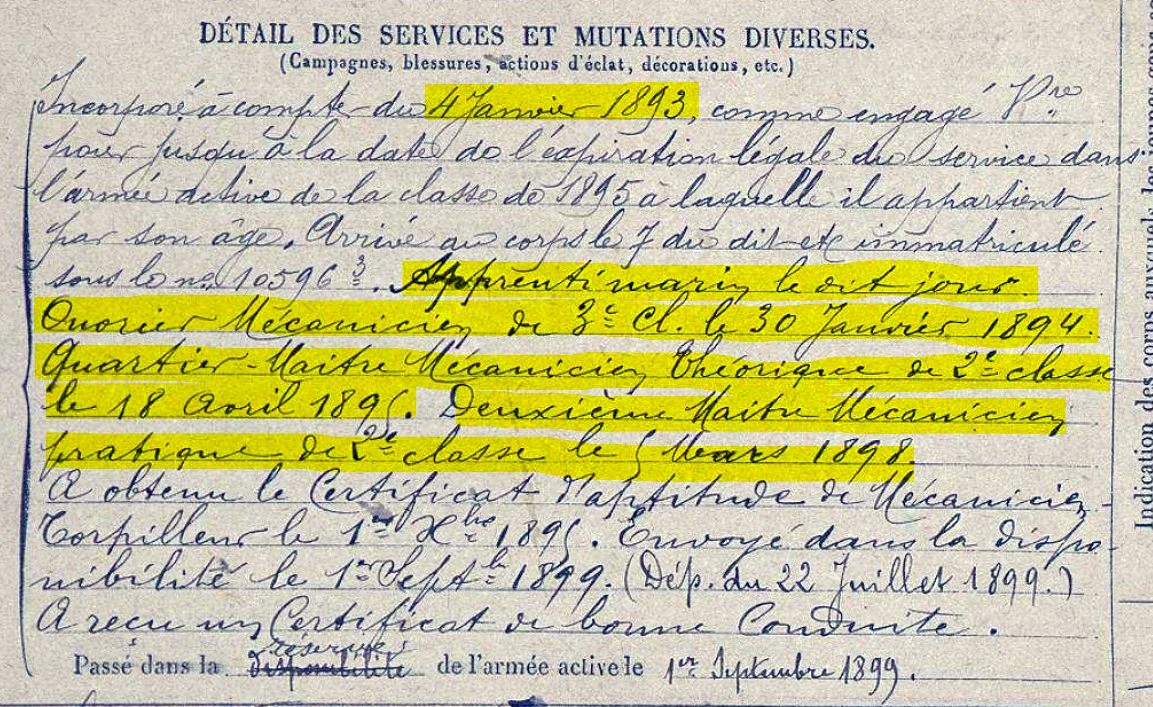 DÉTAIL DES SERVICES ET MUTATIONS DIVERSES.
(Campagnes, blessures, actions d'éclat, décorations, etc.)
Incorporé à compter du 4 Janvier 1893, comme engagé Vre
pour jusqu'à la date de l'expiration légale du service dans
l'armée active de la classe de 1895 à laquelle il appartient
par son âge. Arrivé au corps le 7 du dit et immatriculé
sous le no 10596 3. Apprenti marin le dit jour.
Ouvrier Mécanicien de 3e Cl. le 30 Janvier 1894.
Quartier-Maitre Mécanicien Théorique de 2e classe
le 18 Avril 1895. Deuxième Maitre Mécanicien
pratique de 2e classe le 5 Mars 1898.
A obtenu le Certificat d'aptitude de Mécanicien-
Torpilleur le 1er Xbre 1895. Envoyé dans la dispo-
nibilité le 1er Septbre 1899. (Dép. du 22 Juillet 1899.)
A reçu un Certificat de bonne Conduite.
réserve
Passé dans la disponibilité de l'armée active le 1er Septembre 1899.
Indication des corps auxquels les jeunes gens